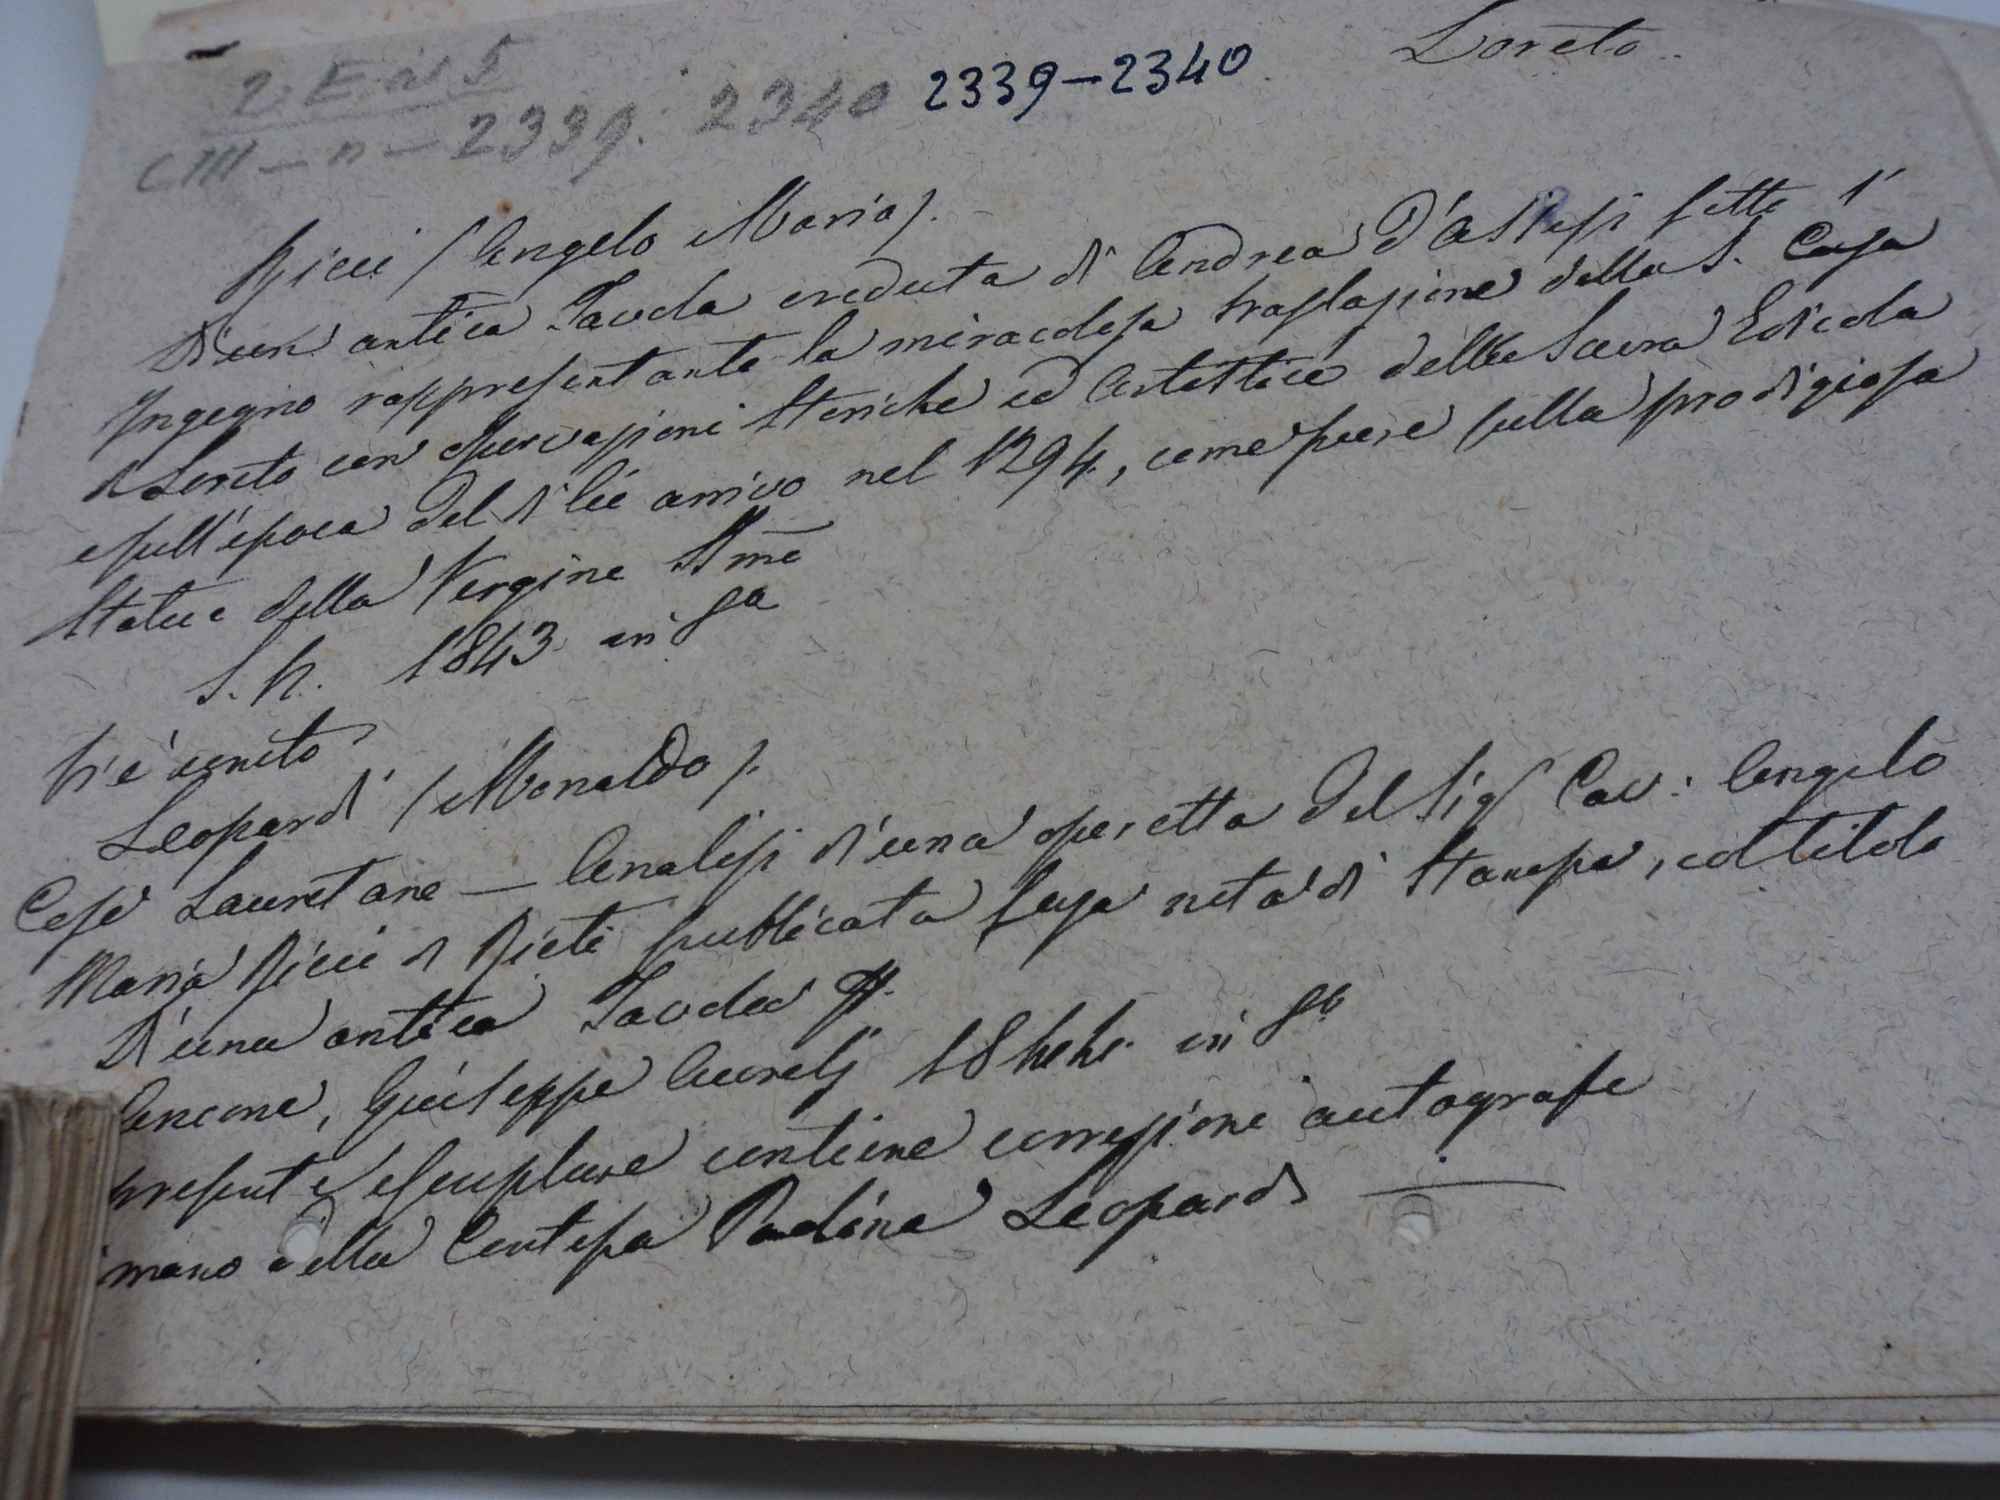 Loreto
2. E. n 5
CIII - n - 2339. 2340 2339-2340
Ricci (Angelo Maria).
D'un' antica Tavola creduta di Andrea d'Assisi detto l'
Ingegno rappresentante la miracolosa traslazione della S. Casa
di Loreto con osservazioni storiche ed artistiche della Sacra Edicola
e sull'epoca del di lei arrivo nel 1294, come pure sulla prodigiosa
Statua della Vergine SSma
S. N. 1843 in 8a
Vi è unito
Leopardi (Monaldo).
Cose Lauretane — Analisi d'una operetta del Sigr Cav: Angelo
Maria Ricci di Rieti pubblicata senza nota di Stampa, col titolo
D'una antica Tavola
Ancona, Giuseppe Aurelj 18 in 8o
presente esemplare contiene correzioni autografe
mano della Contessa Paolina Leopardi